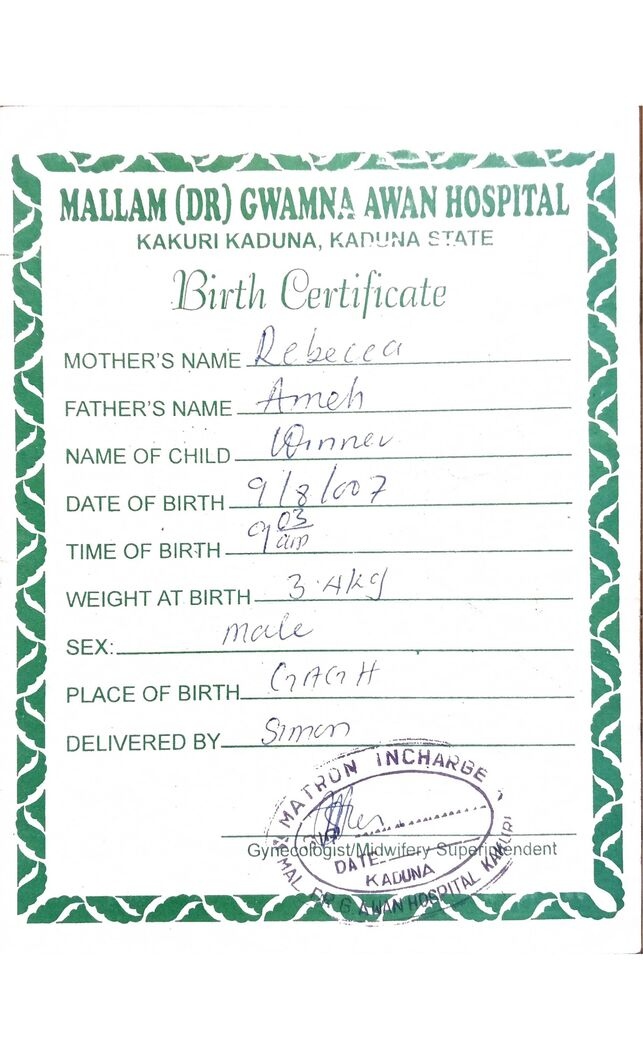 MALLAM (DR) GWAMNA AWAN HOSPITAL
KAKURI KADUNA, KADUNA STATE
Birth Certificate
MOTHER'S NAME Rebecca
FATHER'S NAME Ameh
NAME OF CHILD Winner
DATE OF BIRTH 9/8/007
TIME OF BIRTH 9 03 am
WEIGHT AT BIRTH 3.4kg
SEX: male
PLACE OF BIRTH GAGH
DELIVERED BY Simon
MATRON INCHARGE
Gynecologist/Midwifery Superintendent
DATE
KADUNA
MAL. DR G. AWAN HOSPITAL KAKURI